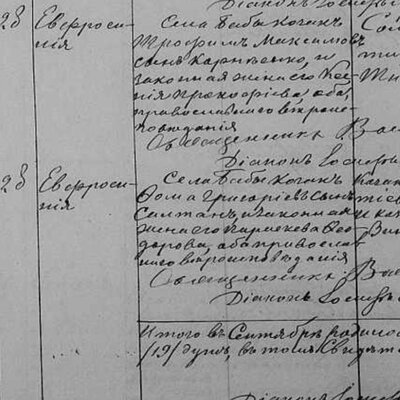 Діаконъ Іосифъ
28 Евфроси-
нія
Села Бабы Кочанъ
Трофимъ Максимовъ
сынъ Карпенко, и
законная жена его
нія Прокофіева, оба
православнаго вѣроис-
повѣданія
Священникъ Вас
Діаконъ Іосифъ
28 Евфроси-
нія
Села Бабы Кочанъ
Ѳома Григоріевъ сынъ
Салтанъ и законная
жена его Параскева Ѳео-
дорова, оба православ-
наго вѣроисповѣданія
Священникъ Вас
Діаконъ Іосифъ
Итого въ Сентябрѣ родилось
/19/ душъ, въ томъ
Діаконъ Іосифъ